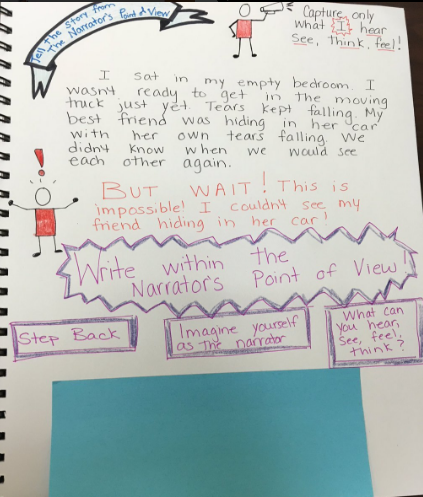 Tell The Story from
The Narrator's Point of View
Capture only
what I hear
see, think, feel!
I sat in my empty bedroom. I
wasn't ready to get in the moving
truck just yet. Tears kept falling. My
best friend was hiding in her car
with her own tears falling. We
didn't know when we would see
each other again.
BUT WAIT! This is
impossible! I couldn't see my
friend hiding in her car!
Write within the
Narrators Point of View!
Step Back
Imagine yourself
as The narrator
What can
you hear,
see, feel,
think?